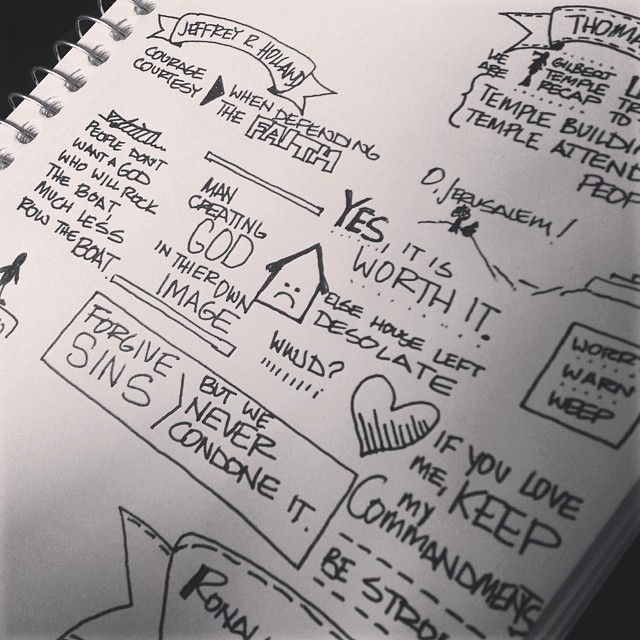 JEFFREY R. HOLLAND
COURAGE
COURTESY
WHEN DEFENDING
THE FAITH
PEOPLE DON'T
WANT A GOD
WHO WILL ROCK
THE BOAT,
MUCH LESS
ROW THE BOAT
MAN
CREATING
GOD
IN THEIR OWN
IMAGE
YES, IT IS
WORTH IT.
ELSE HOUSE LEFT
DESOLATE
WWJD?
FORGIVE
SINS
BUT WE
NEVER
CONDONE IT.
IF YOU LOVE
ME, KEEP
MY
COMMANDMENTS
BE STRO
THOMA
WE
ARE
GILBERT
TEMPLE
RECAP
TO
TEMPLE BUILDI
TEMPLE ATTEND
PEOP
O, JERUSALEM!
WORR
WARN
WEEP
RONAL